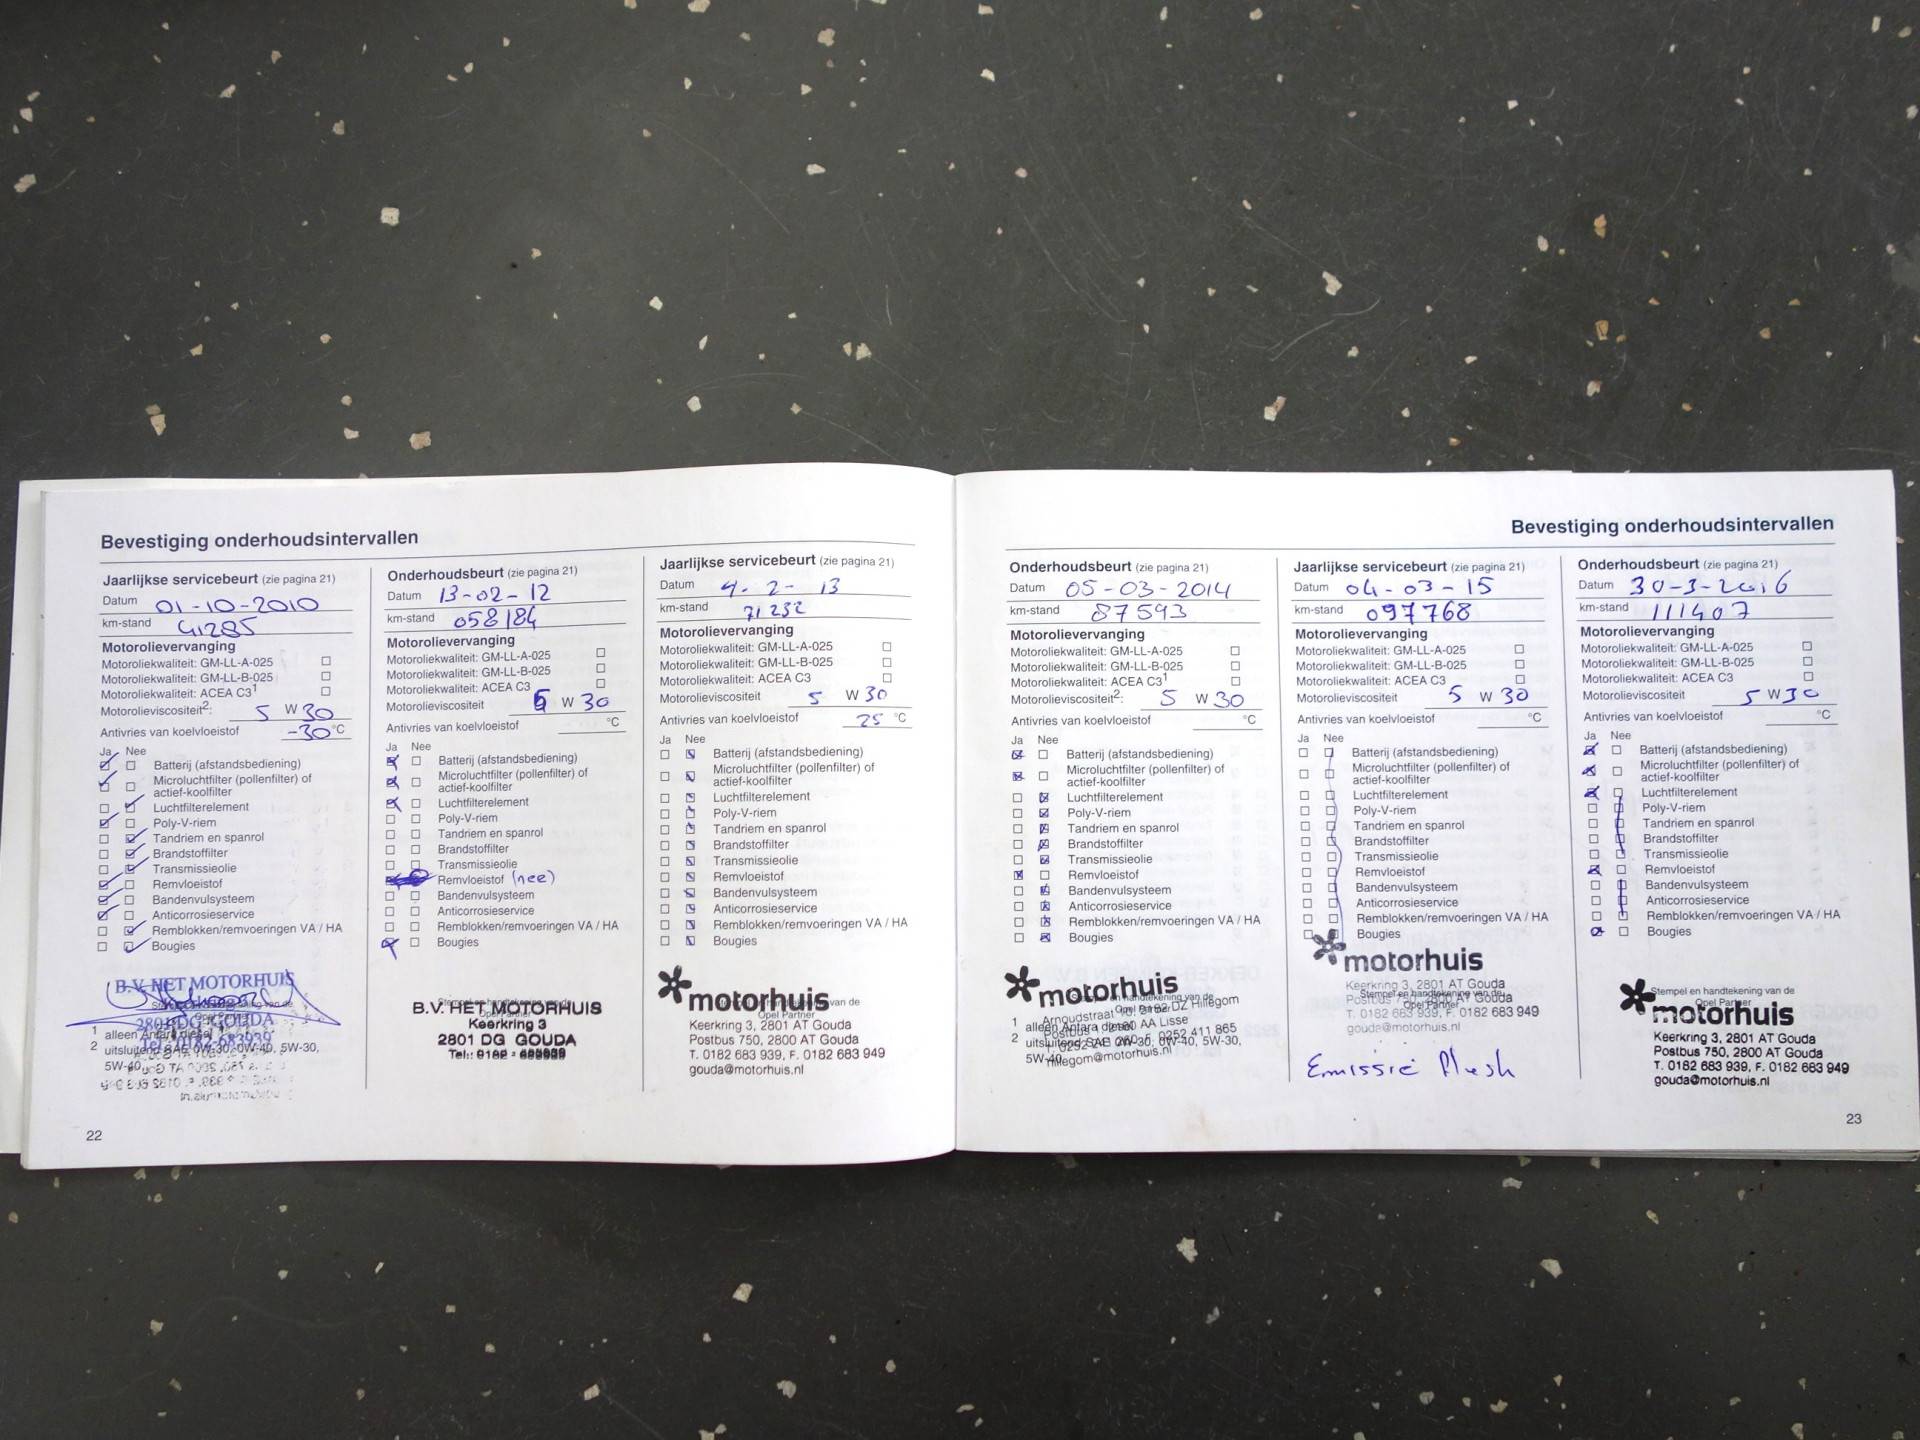 Bevestiging onderhoudsintervallen
Jaarlijkse servicebeurt (zie pagina 21)
Datum 01-10-2010
km-stand 41285
Motorolievervanging
Motoroliekwaliteit: GM-LL-A-025
Motoroliekwaliteit: GM-LL-B-025
Motoroliekwaliteit: ACEA C3¹
Motorolieviscositeit²: 5 W 30
Antivries van koelvloeistof -30 °C
Ja Nee
Batterij (afstandsbediening)
Microluchtfilter (pollenfilter) of
actief-koolfilter
Luchtfilterelement
Poly-V-riem
Tandriem en spanrol
Brandstoffilter
Transmissieolie
Remvloeistof
Bandenvulsysteem
Anticorrosieservice
Remblokken/remvoeringen VA / HA
Bougies
B.V. HET MOTORHUIS
Keerkring 3
2801 DG GOUDA
Tel. 0182-683939
1 alleen Antara diesel
2 uitsluitend SAE 0W-30, 0W-40, 5W-30,
5W-40
22
Onderhoudsbeurt (zie pagina 21)
Datum 13-02-12
km-stand 058184
Motorolievervanging
Motoroliekwaliteit: GM-LL-A-025
Motoroliekwaliteit: GM-LL-B-025
Motoroliekwaliteit: ACEA C3
Motorolieviscositeit 5 W 30
Antivries van koelvloeistof °C
Ja Nee
Batterij (afstandsbediening)
Microluchtfilter (pollenfilter) of
actief-koolfilter
Luchtfilterelement
Poly-V-riem
Tandriem en spanrol
Brandstoffilter
Transmissieolie
Remvloeistof (nee)
Bandenvulsysteem
Anticorrosieservice
Remblokken/remvoeringen VA / HA
Bougies
Stempel en handtekening van de
Opel Partner
B.V. HET MOTORHUIS
Keerkring 3
2801 DG GOUDA
Tel.: 0182 -
Jaarlijkse servicebeurt (zie pagina 21)
Datum 4-2-13
km-stand 71232
Motorolievervanging
Motoroliekwaliteit: GM-LL-A-025
Motoroliekwaliteit: GM-LL-B-025
Motoroliekwaliteit: ACEA C3
Motorolieviscositeit 5 W 30
Antivries van koelvloeistof 25 °C
Ja Nee
Batterij (afstandsbediening)
Microluchtfilter (pollenfilter) of
actief-koolfilter
Luchtfilterelement
Poly-V-riem
Tandriem en spanrol
Brandstoffilter
Transmissieolie
Remvloeistof
Bandenvulsysteem
Anticorrosieservice
Remblokken/remvoeringen VA / HA
Bougies
Stempel en handtekening van de
Opel Partner
motorhuis
Keerkring 3, 2801 AT Gouda
Postbus 750, 2800 AT Gouda
T. 0182 683 939, F. 0182 683 949
gouda@motorhuis.nl
Bevestiging onderhoudsintervallen
Onderhoudsbeurt (zie pagina 21)
Datum 05-03-2014
km-stand 87593
Motorolievervanging
Motoroliekwaliteit: GM-LL-A-025
Motoroliekwaliteit: GM-LL-B-025
Motoroliekwaliteit: ACEA C3¹
Motorolieviscositeit²: 5 W 30
Antivries van koelvloeistof °C
Ja Nee
Batterij (afstandsbediening)
Microluchtfilter (pollenfilter) of
actief-koolfilter
Luchtfilterelement
Poly-V-riem
Tandriem en spanrol
Brandstoffilter
Transmissieolie
Remvloeistof
Bandenvulsysteem
Anticorrosieservice
Remblokken/remvoeringen VA / HA
Bougies
Stempel en handtekening van de
Opel Partner
motorhuis
Arnoudstraat 10, 2182 DZ Hillegom
AA Lisse
F. 0252 411 865
hillegom@motorhuis.nl
1 alleen Antara diesel
2 uitsluitend SAE 0W-30, 0W-40, 5W-30,
5W-40
Jaarlijkse servicebeurt (zie pagina 21)
Datum 04-03-15
km-stand 097768
Motorolievervanging
Motoroliekwaliteit: GM-LL-A-025
Motoroliekwaliteit: GM-LL-B-025
Motoroliekwaliteit: ACEA C3
Motorolieviscositeit 5 W 30
Antivries van koelvloeistof °C
Ja Nee
Batterij (afstandsbediening)
Microluchtfilter (pollenfilter) of
actief-koolfilter
Luchtfilterelement
Poly-V-riem
Tandriem en spanrol
Brandstoffilter
Transmissieolie
Remvloeistof
Bandenvulsysteem
Anticorrosieservice
Remblokken/remvoeringen VA / HA
Bougies
motorhuis
Keerkring 3, 2801 AT Gouda
Stempel en handtekening van de
Postbus 750, 2800 AT Gouda
Opel Partner
T. 0182 683 939, F. 0182 683 949
gouda@motorhuis.nl
Emissie flush
Onderhoudsbeurt (zie pagina 21)
Datum 30-3-2016
km-stand 111407
Motorolievervanging
Motoroliekwaliteit: GM-LL-A-025
Motoroliekwaliteit: GM-LL-B-025
Motoroliekwaliteit: ACEA C3
Motorolieviscositeit 5 W 30
Antivries van koelvloeistof °C
Ja Nee
Batterij (afstandsbediening)
Microluchtfilter (pollenfilter) of
actief-koolfilter
Luchtfilterelement
Poly-V-riem
Tandriem en spanrol
Brandstoffilter
Transmissieolie
Remvloeistof
Bandenvulsysteem
Anticorrosieservice
Remblokken/remvoeringen VA / HA
Bougies
Stempel en handtekening van de
Opel Partner
motorhuis
Keerkring 3, 2801 AT Gouda
Postbus 750, 2800 AT Gouda
T. 0182 683 939, F. 0182 683 949
gouda@motorhuis.nl
23